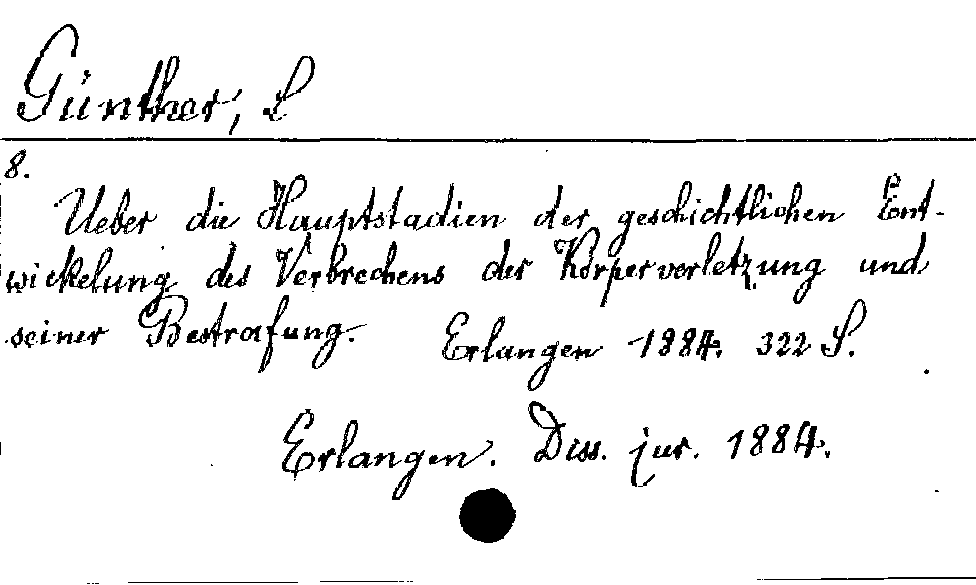 Günther, L
8.
Ueber die Hauptstadien der geschichtlichen Ent-
wickelung des Verbrechens der Körperverletzung und
seiner Bestrafung. Erlangen 1884. 322 S.
Erlangen. Diss. jur. 1884.